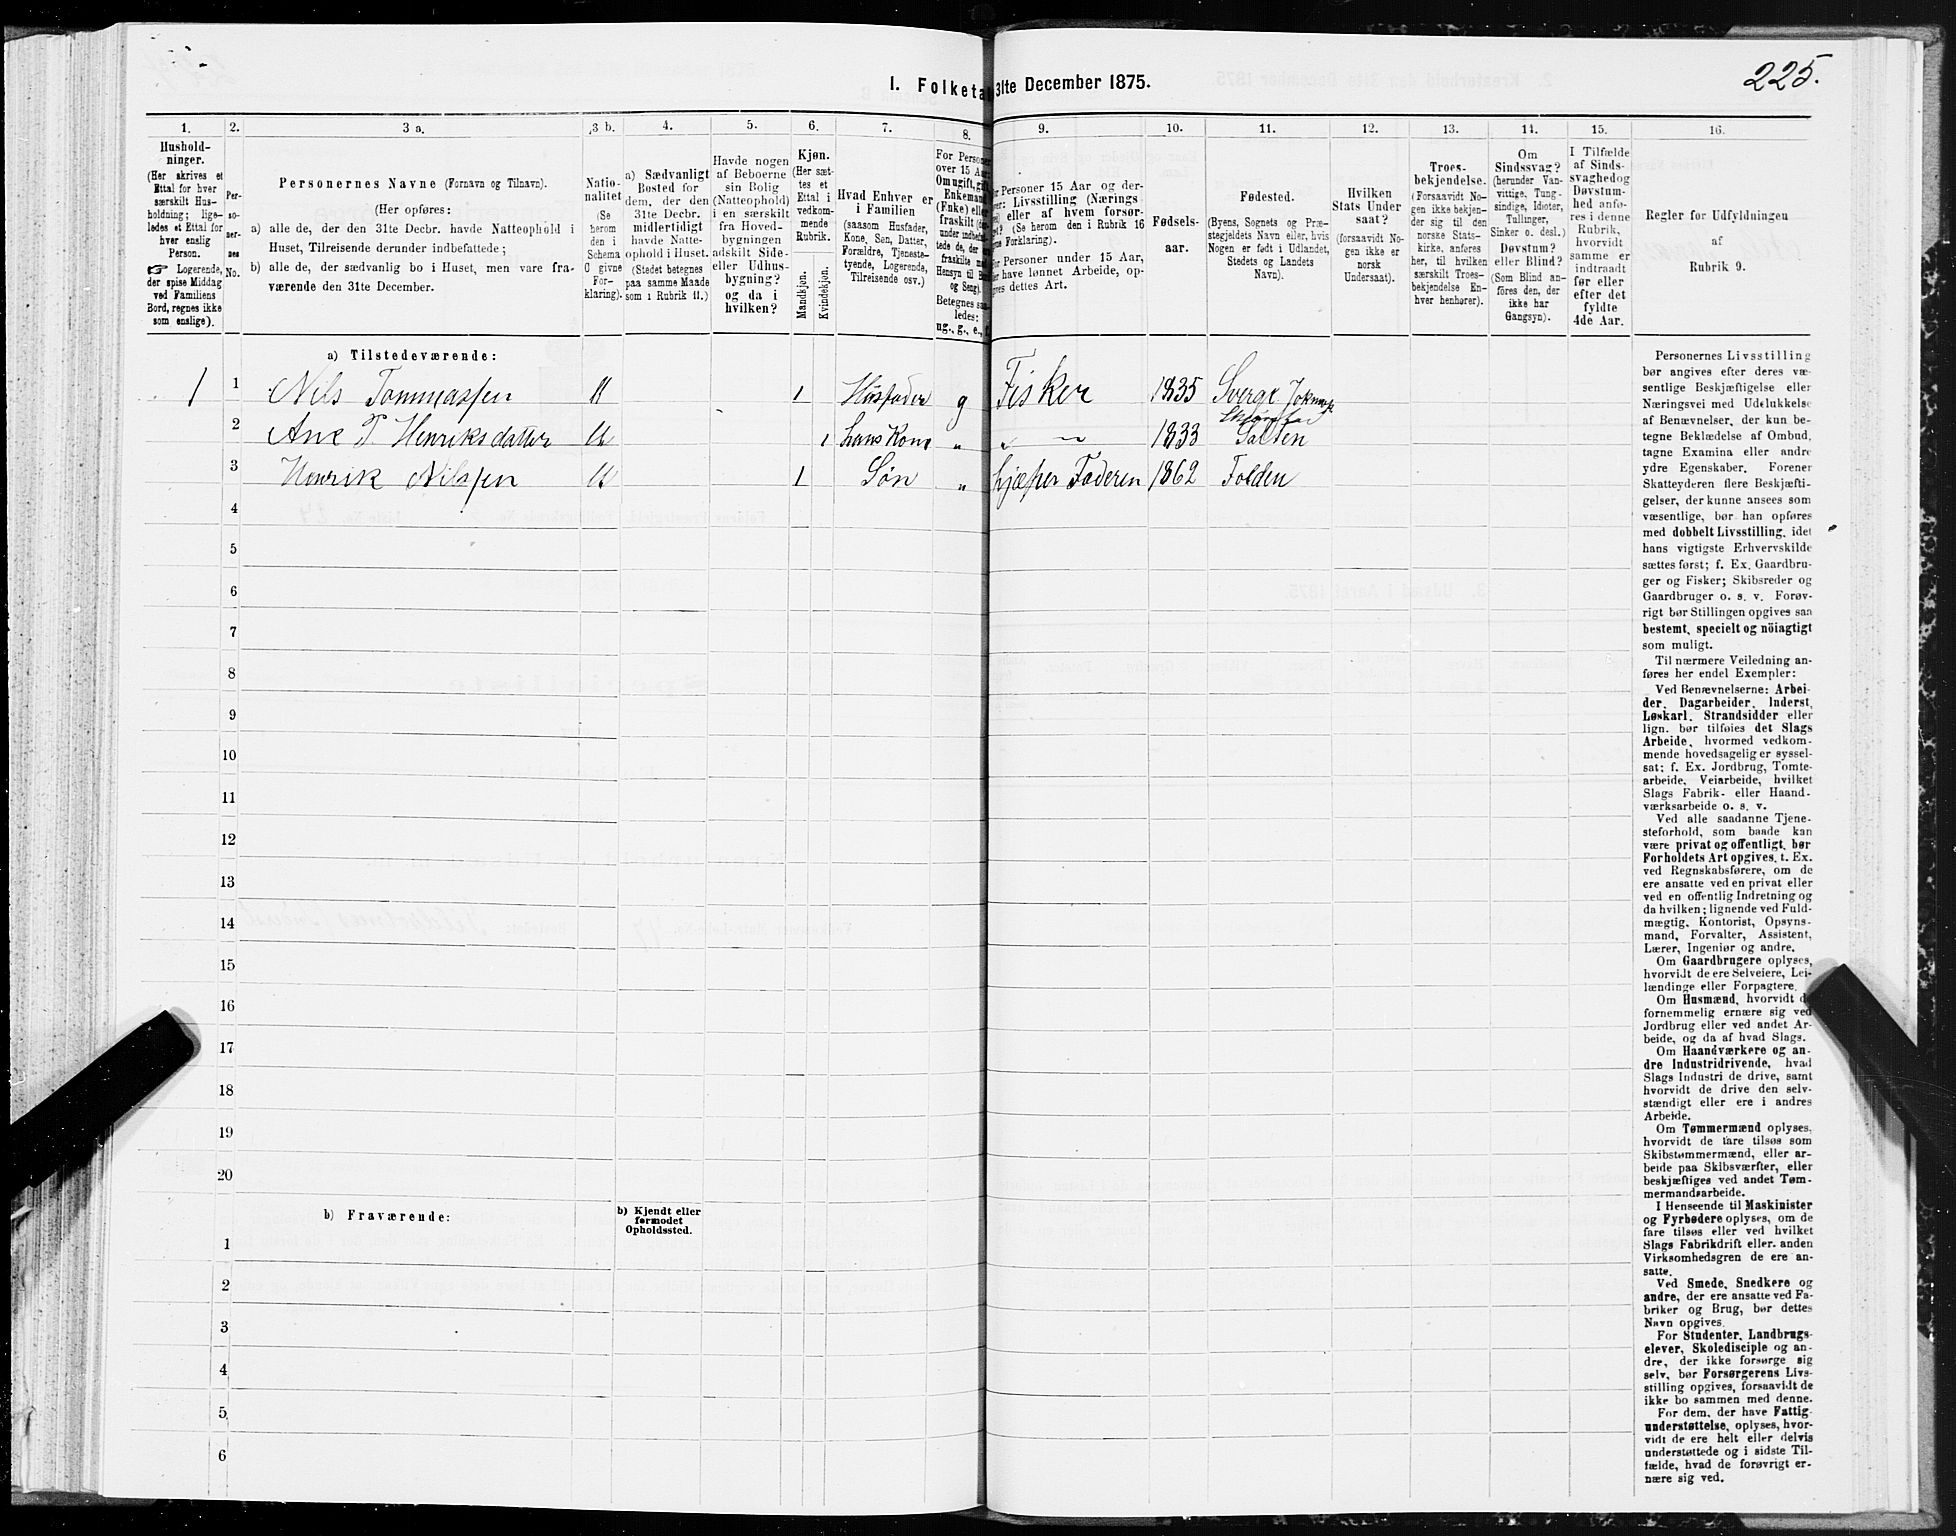 225.
I. Folketa 31te December 1875.
1. 2. 3 a. 3 b. 4. 5. 6. 7. 8. 9. 10. 11. 12. 13. 14. 15. 16.
Hushold-
ninger.
(Her skrives et
Ettal for hver
særskilt Hus-
holdning; lige-
ledes et Ettal for
hver enslig
Person.
☞ Logerende,
der spise Middag
ved Familiens
Bord, regnes ikke
som enslige).
Per-
so-
ner-
nes
No.
Personernes Navne (Fornavn og Tilnavn).
(Her opføres:
a) alle de, der den 31te Decbr. havde Natteophold i
Huset, Tilreisende derunder indbefattede;
b) alle de, der sædvanlig bo i Huset, men vare fra-
værende den 31te December.
Natio-
nalitet
(Se
herom
den i
Schema
O givne
For-
klaring).
a) Sædvanligt
Bosted for
dem, der den
31te Decbr.
midlertidigt
havde Natte-
ophold i Huset.
(Stedet betegnes
paa samme Maade
som i Rubrik 11.)
Havde nogen
af Beboerne
sin Bolig
(Natteophold)
i en særskilt
fra Hoved-
bygningen
adskilt Side-
eller Udhus-
bygning?
og da i
hvilken?
Kjøn.
(Her sæt-
tes et
Ettal i
vedkom-
mende
Rubrik.
Mandkjøn.
Kvindekjøn.
Hvad Enhver er
i Familien
(saasom Husfader,
Kone, Søn, Datter,
Forældre, Tjeneste-
tyende, Logerende,
Tilreisende osv.)
For Person
over 15 Aar
Om ugift, gift,
Enkemand
(Enke) elle
fraskilt
under indbefat-
tede de, der
fraskilte m
Hensyn til B
og Seng).
Betegnes saa
ledes:
ug., g., e., f.
r Personer 15 Aar og der-
er: Livsstilling (Nærings
eller af hvem forsør-
get? (Se herom den i Rubrik 16
ne Forklaring).
r Personer under 15 Aar,
have lønnet Arbeide, op-
gives dettes Art.
Fødsels-
aar.
Fødested.
(Byens, Sognets og Præ-
stegjeldets Navn eller, hvis
Nogen er født i Udlandet,
Stedets og Landets
Navn).
Hvilken
Stats Under
saat?
(forsaavidt No-
gen ikke er
norsk
Undersaat).
Troes-
bekjendelse.
(Forsaavidt No-
gen ikke bekjen-
der sig til den
norske Stats-
kirke, anføres
her, til hvilken
særskilt Troes-
bekjendelse En-
hver henhører).
Om
Sindssvag?
(herunder Van-
vittige, Tung-
sindige, Idioter,
Tullinger,
Sinker o. desl.)
Døvstum?
eller Blind?
(Som Blind an-
føres den, der
ikke har
Gangsyn).
I Tilfælde
af Sinds-
svaghedog
Døvstum-
hed anfø-
res i denne
Rubrik,
hvorvidt
samme er
indtraadt
før eller
efter det
fyldte
4de Aar.
Regler for Udfyldningen
af
Rubrik 9.
a) Tilstedeværende:
1 1 Nils Tommassen 1 Husfader g Fisker 1835 Sverge
2 Ane P Henriksdatter 1 hans Kone „ „ 1833 Salten
3 Henrik Nilssen 1 Søn „ hjælper Faderen 1862 Folden
4
5
6
7
8
9
10
11
12
13
14
15
16
17
18
19
20
b) Fraværende:
b) Kjendt eller
formodet
Opholdssted.
1
2
3
4
5
6
Personernes Livsstilling
bør angives efter deres væ-
sentlige Beskjæftigelse eller
Næringsvei med Udelukkelse
af Benævnelser, der kun be-
tegne Beklædelse af Ombud,
tagne Examina eller andre
ydre Egenskaber. Forener
Skatteyderen flere Beskjæfti-
gelser, der kunne ansees som
væsentlige, bør han opføres
med dobbelt Livsstilling, idet
hans vigtigste Erhvervskilde
sættes først; f. Ex. Gaardbru-
ger og Fisker; Skibsreder og
Gaardbruger o. s. v. Forøv-
rigt bør Stillingen opgives saa
bestemt, specielt og nöiagtigt
som muligt.
Til nærmere Veiledning an-
føres her endel Exempler:
Ved Benævnelserne: Arbei-
der, Dagarbeider, Inderst,
Løskarl, Strandsidder eller
lign. bør tilføies det Slags
Arbeide, hvormed vedkom-
mende hovedsagelig er syssel-
sat; f. Ex. Jordbrug, Tomte-
arbeide, Veiarbeide, hvilket
Slags Fabrik- eller Haand-
værksarbeide o. s. v.
Ved alle saadanne Tjene-
steforhold, som baade kan
være privat og offentligt, bør
Forholdets Art opgives, t. Ex.
ved Regnskabsførere, om de
ere ansatte ved en privat eller
ved en offentlig Indretning og
da hvilken; lignende ved Fuld-
mægtig, Kontorist, Opsyns-
mand, Forvalter, Assistent,
Lærer, Ingeniør og andre.
Om Gaardbrugere oplyses,
hvorvidt de ere Selveiere, Lei-
lændinge eller Forpagtere.
Om Husmænd, hvorvidt d
fornemmelig ernære sig ved
Jordbrug eller ved andet Ar-
beide, og da af hvad Slags.
Om Haandværkere og an-
dre Industridrivende, hvad
Slags Industri de drive, samt
hvorvidt de drive den selv-
stændigt eller ere i andres
Arbeide.
Om Tømmermænd oplyses,
hvorvidt de fare tilsøs som
Skibstømmermænd, eller ar-
beide paa Skibsværfter, eller
beskjæftiges ved andet Tøm-
mermandsarbeide.
I Henseende til Maskinister
og Fyrbødere oplyses, om de
fare tilsøs eller ved hvilket
Slags Fabrikdrift eller anden
Virksomhedsgren de ere an-
satte.
Ved Smede, Snedkere og
andre, der ere ansatte ved Fa-
briker og Brug, bør dettes
Navn opgives.
For Studenter, Landbrugs-
elever, Skoledisciple og an-
dre, der ikke forsørge sig
selv, bør Forsørgerens Livs-
stilling opgives, forsaavidt de
ikke bo sammen med denne.
For dem, der have Fattig-
understøttelse, oplyses, hvor-
vidt de ere helt eller delvis
understøttede og i sidste Til-
fælde, hvad de forøvrigt er-
nære sig ved.